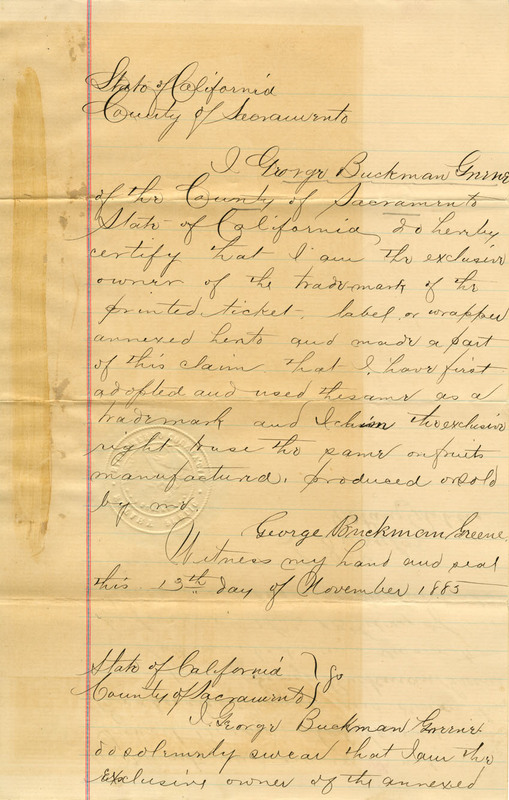 State of California
County of Sacramento
I George Buckman Greene
of the County of Sacramento
State of California, do hereby
certify that I am the exclusive
owner of the trademark of the
printed ticket, label, or wrapper
annexed hereto and made a part
of this claim that I have first
adopted and used thesame as a
trademark and I claim the exclusive
right to use the same on fruits
manufactured, produced or sold
by me
George Buckman Greene.
Witness my hand and seal
this 13th day of November 1885
State of California
County of Sacramento
I George Buckman Greene
do solemnly swear that I am the
exclusive owner of the annexed